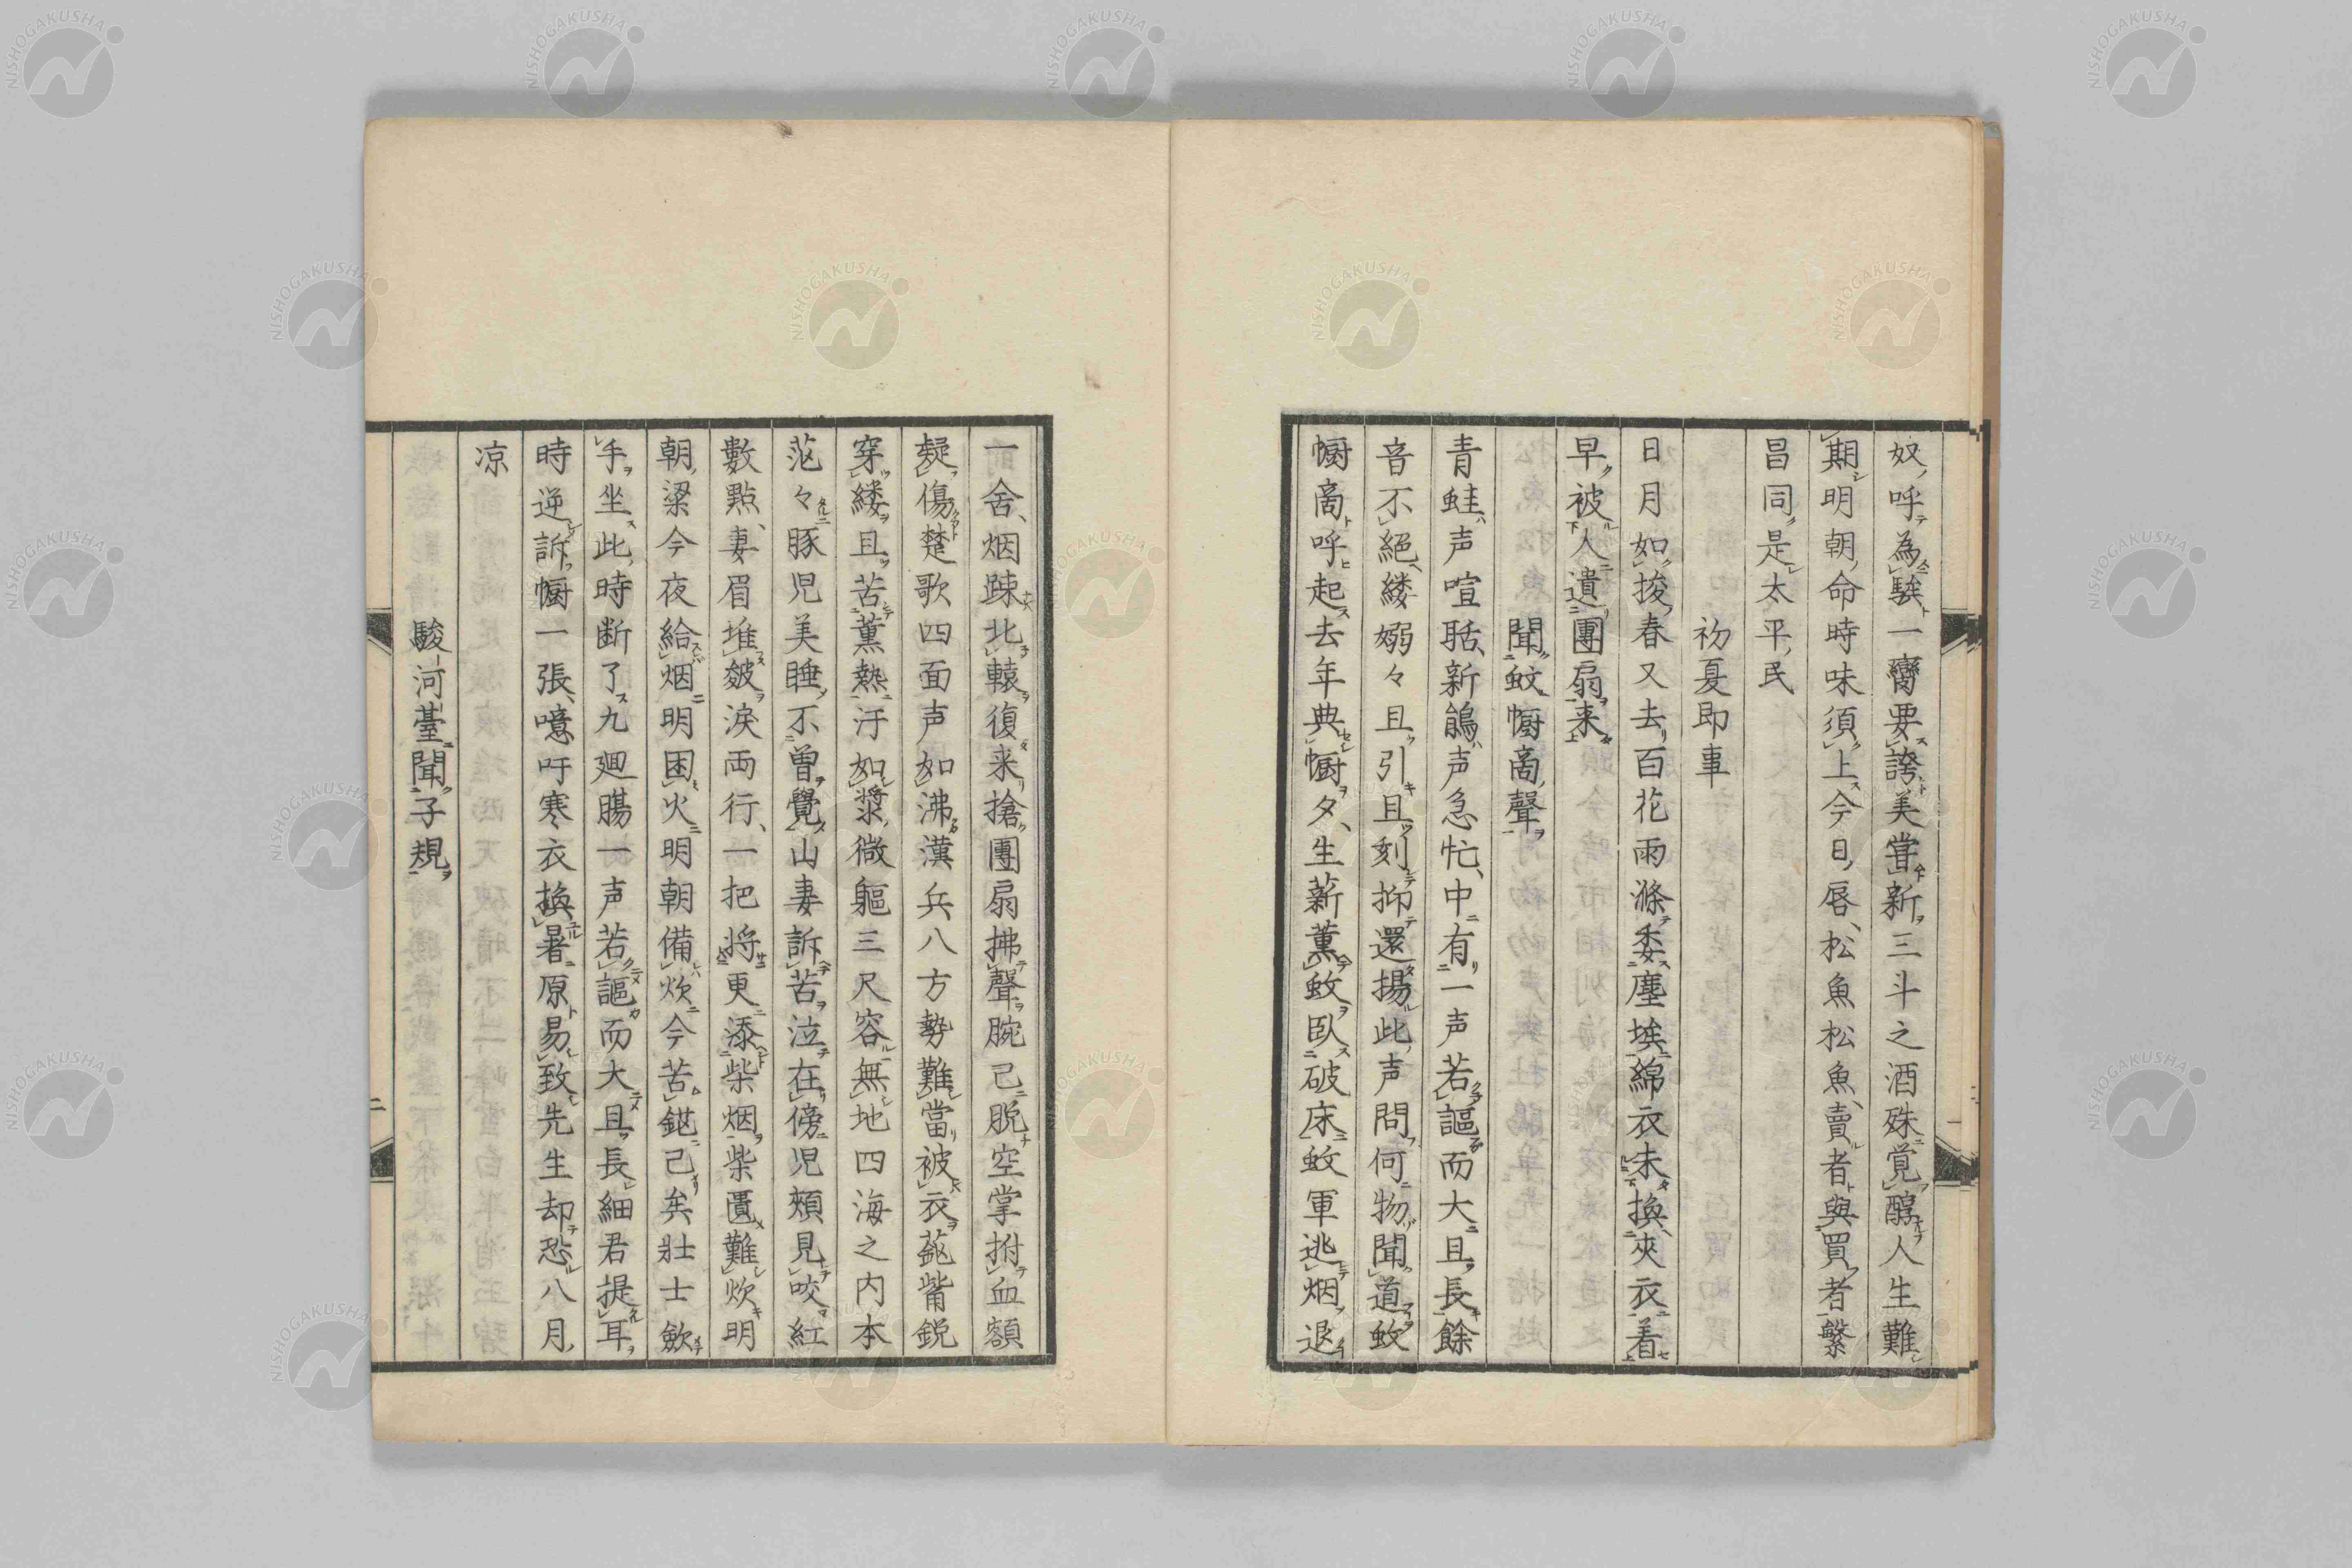 奴呼為騃一臠要誇美甞新三斗之酒殊覚醇人生難
期明朝命時味須上今日唇松魚松魚賣者與買者繁
昌同是太平民
初夏即事
日月如梭春又去百花雨滌委塵埃綿衣未換夾衣着
早被人遺團扇来
聞蚊幮啇聲
青蛙声喧聒新鵑声急忙中有一声若謳而大且長餘
音不絕縷嫋々且引且刻抑還揚此声問何物聞道蚊
幮啇呼起去年典幮夕生薪薫蚊臥破床蚊軍逃烟退
一舍烟踈北轅復来搶團扇拂聲腕已脱空掌拊血額
凝傷楚歌四面声如沸漢兵八方勢難當被衣蓊觜鋭
穿縷且苦薫熱汗如漿微軀三尺容無地四海之内本
茫々豚児美睡不曽覺山妻訴苦泣在傍児頰見咬紅
數點妻眉堆皴淚両行一把将更添柴烟柴匱難炊明
朝梁今夜給烟明困火明朝備炊今苦鎚已矣壮士歛
手坐此時断了九廻腸一声若謳而大且長細君提耳
時逆訴幮一張噫吁寒衣換暑原易致先生却恐八月
凉
駿河臺聞子規
二
NISHOGAKUSHA